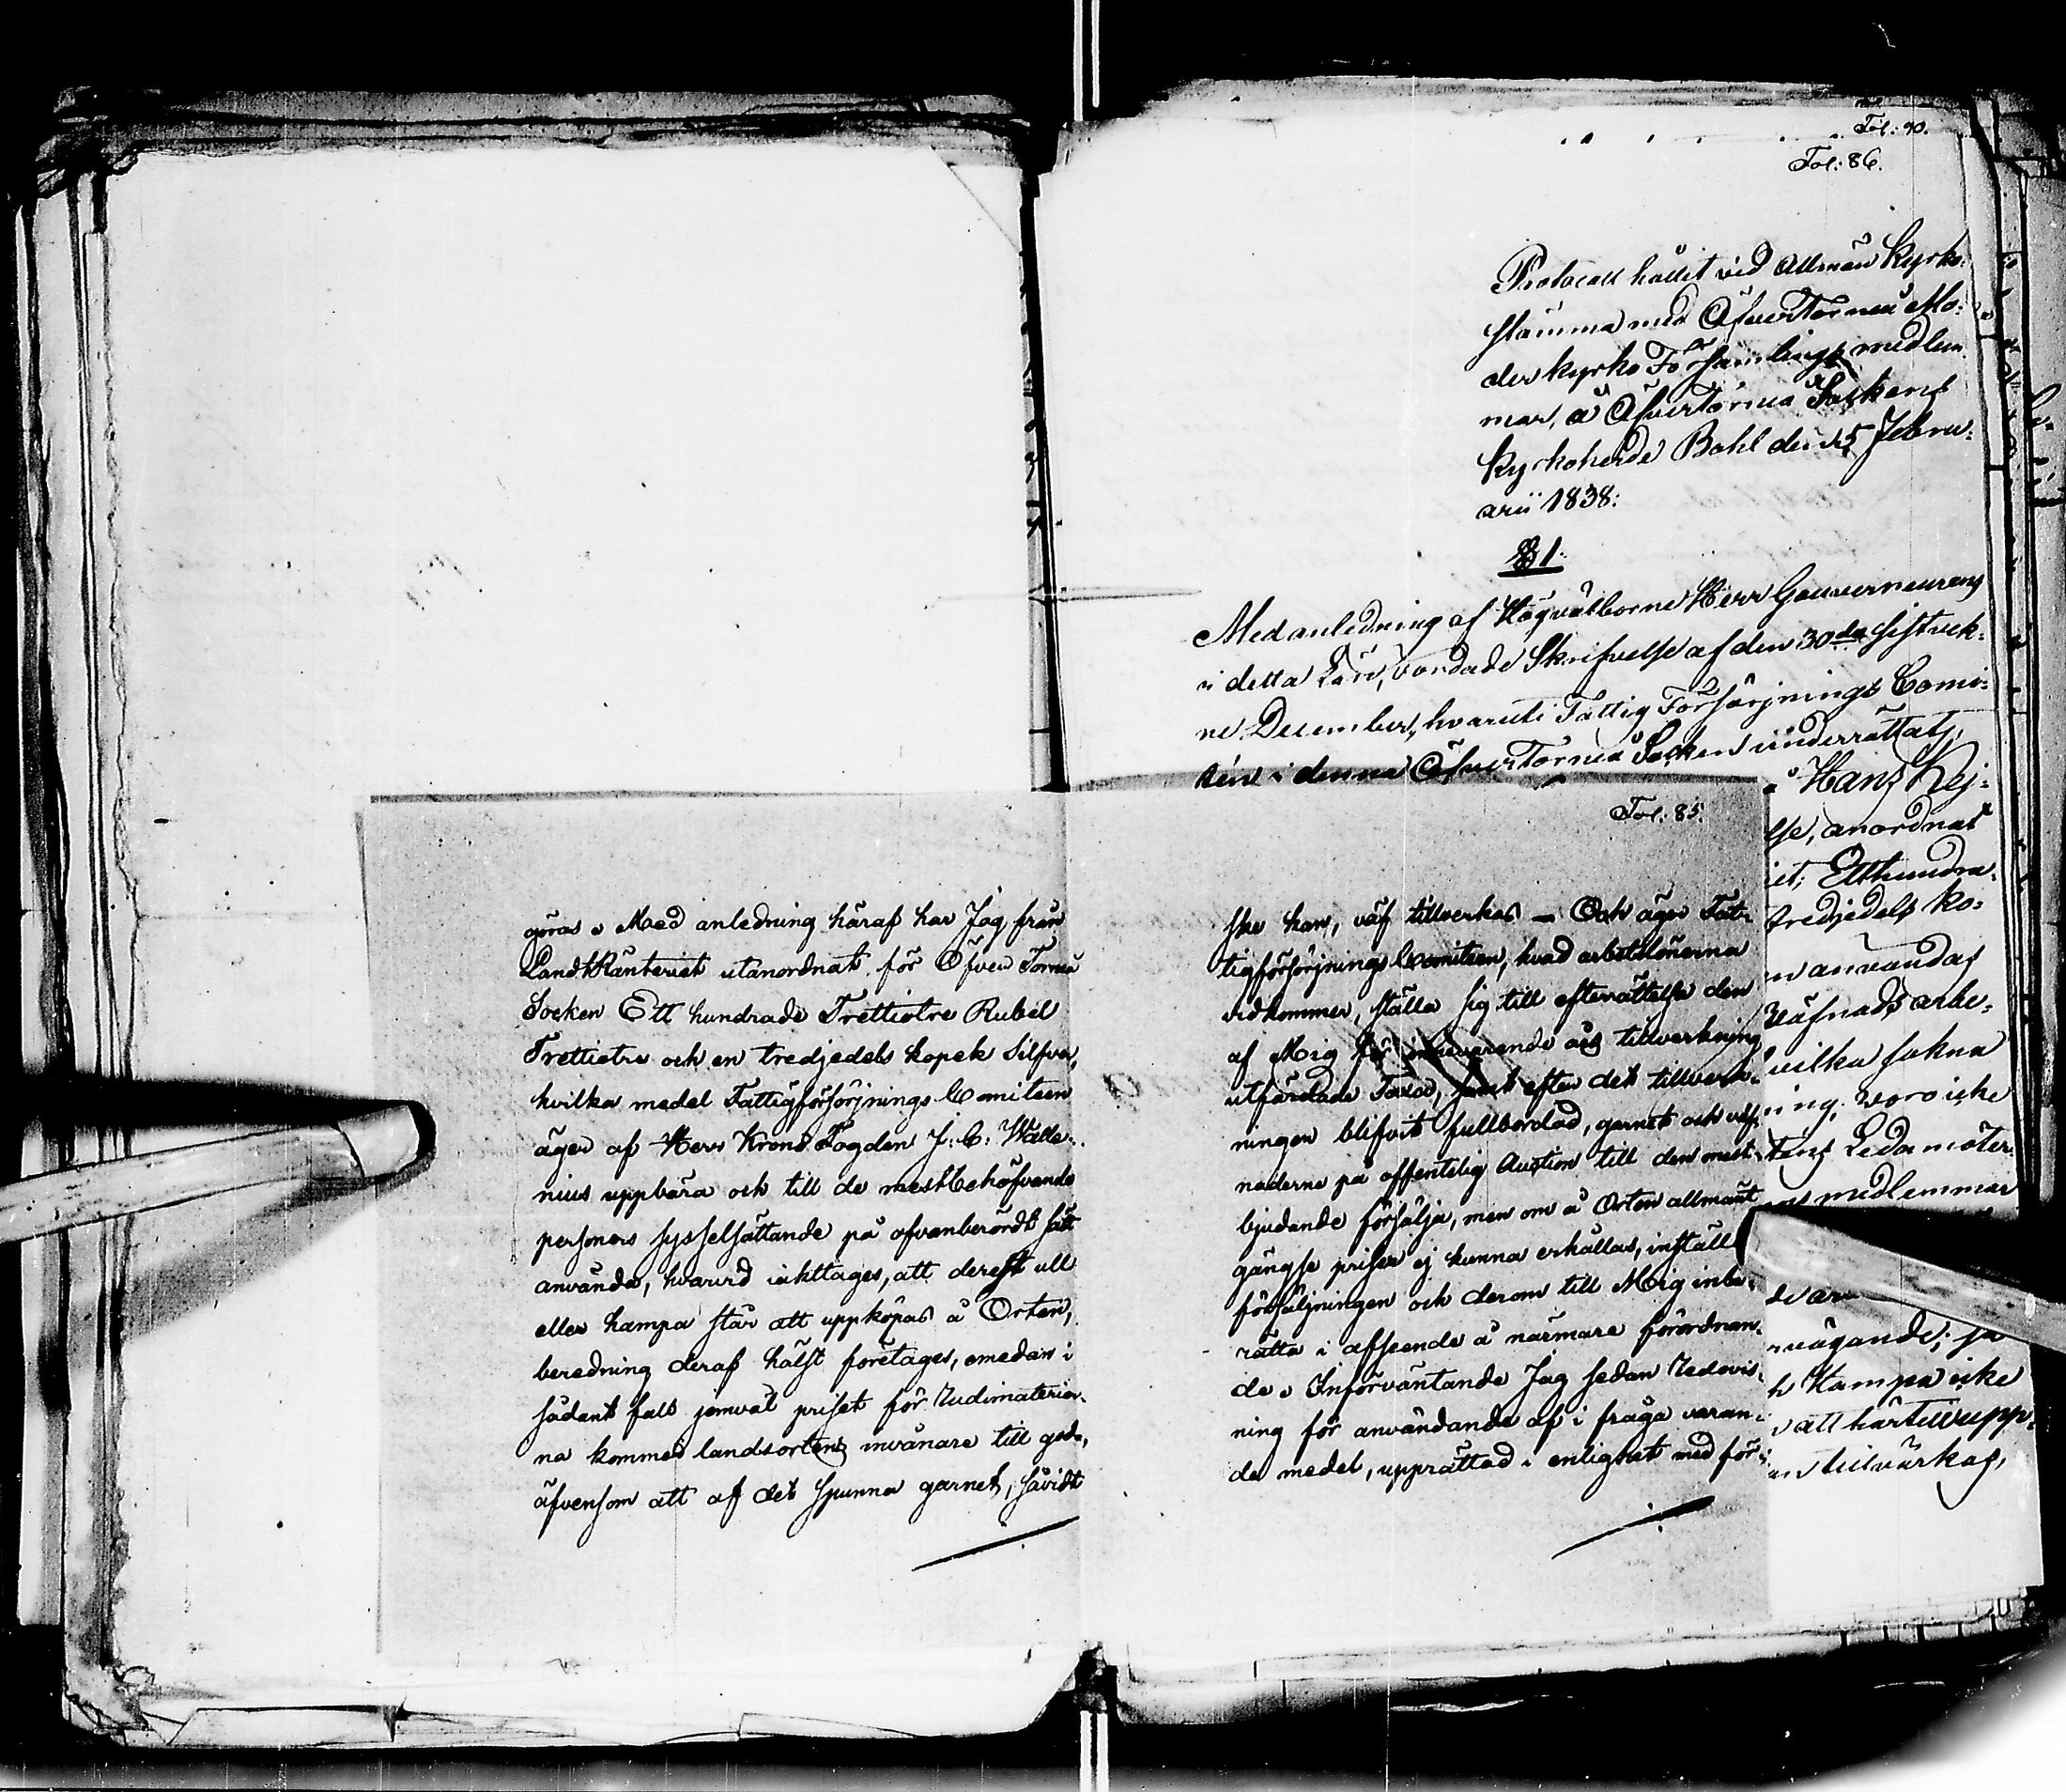 Fol: 90.
Fol: 86.
Protocall hållit vid Allmän Kyrko-
stämma med ÖfverTorneå Mo-
derkyrko Församlings medlem-
mar, å ÖfverTorneå Sockens
Kyrkoherde Bohl den 25 Febru-
arii 1838:
§ 1.
Med anledning af Högvälborne Herr Gouverneurens
i detta Län, vördade Skrifvelse af den 30de sistvek-
ne December, hvaruti Fattig Försörjnings Comi-
tén i denna ÖfverTorneå Socken underrättats,
Hans Kej-
lse, anordnat
iet, Etthundra-
tredjedels ko-
en användas
Väfnads arbe-
vilka sakna
ning, voro icke
tens Ledamöter
medlemmar
rvägande, ja
h Hampa icke
att härtill upp-
an tillvärkas,
göras. Med anledning häraf har Jag från
LandtRänteriet utanordnat för Öfver Torneå
Socken Ett hundrade Trettiotre Rubel
Trettiotre och en tredjedels kopek Silfver,
hvilka medel Fattigförsörjnings Comiteen
äger af Herr Krono Fogden J. C. Walle-
nius uppbära och till de mestbehöfvande
personers sysselsättande på ofvanberördt sätt
använda, hvarvid iakttages, att derest ull
eller hampa står att uppköpas å Orten,
beredning deraf hälst företages, emedan i
sådant fall jemväl priset för Rudimaterier-
na kommer landsortens invånare till godo,
äfvensom att af det spunna garnet, såvidt
Fol: 85.
ske kan, väf tillverkas — Och äger Fat-
tigförsörjnings Comiteen, hvad arbetslönerna
vidkommer, ställa sig till efterrättelse den
af Mig för innevarande års tillverkning
utfärdade Taxa, samt efter det tillverk-
ningen blifvit fullbordad, garnet och väf-
naderne på offentelig Auction till den mest-
bjudande försälja, men om å Orten allmänt
gängse priser ej kunna erhållas, inställa
försäljningen och derom till Mig inbe-
rätta i afseende å närmare förordnan-
de. Införväntande Jag sedan Redovis-
ning för användande af i fråga varan-
de medel, upprättad i enlighet med för-